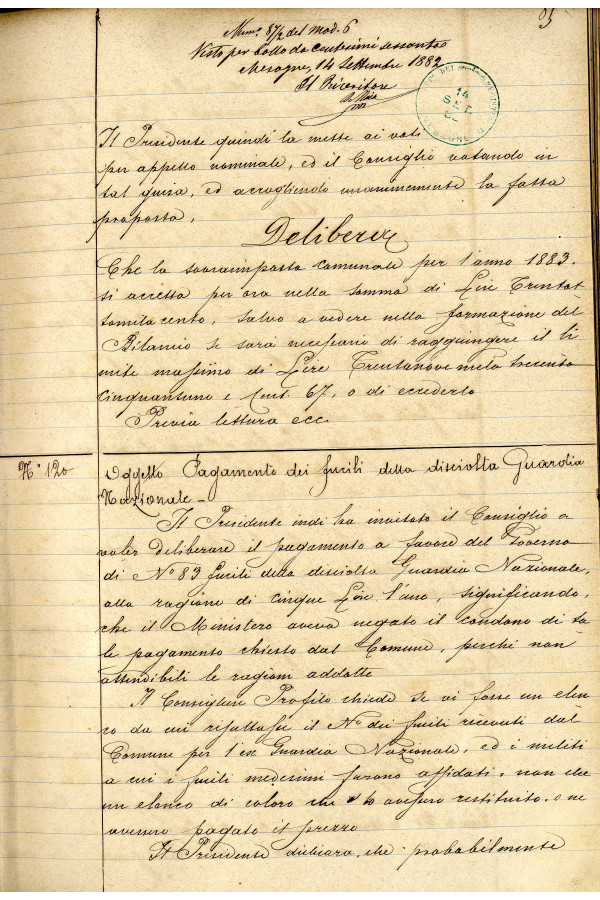 Num.° 87/2 del mod. 6
Visto per bollo da centesimi sessanta
Mesagne, 14 Settembre 1882
Il Ricevitore
14
SET
82
Il Presidente quindi la mette ai voti
per appello nominale, ed il Consiglio votando in
tal guisa, ed accogliendo unanimemente la fatta
proposta,
Delibera
Che la sovraimposta comunale per l'anno 1883.
si accetta per ora nella somma di Lire Trentot
tomila cento, salvo a vedere nella formazione del
Bilancio se sarà necessario di raggiungere il li
mite massimo di Lire Trentanove mila trecento
cinquantuno e cent. 67, o di eccederlo
Previa lettura ecc.
N.° 120
Oggetto Pagamento dei fucili della disciolta Guardia
Nazionale_
Il Presidente indi ha invitato il Consiglio a
voler deliberare il pagamento a favore del Governo
di N.° 83 fucili della disciolta Guardia Nazionale,
alla ragione di cinque Lire l'uno, significando,
che il Ministero aveva negato il condono di ta
le pagamento chiesto dal Comune, perchè non
attendibili le ragioni addotte
Il Consigliere Profilo chiede se vi fosse un elen
co da cui risultasse il N.° dei fucili ricevuti dal
Comune per l'ex Guardia Nazionale, ed i militi
a cui i fucili medesimi furono affidati, non che
un elenco di coloro che avessero restituito, o ne
avessero pagato il prezzo
Il Presidente dichiara, che probabilmente